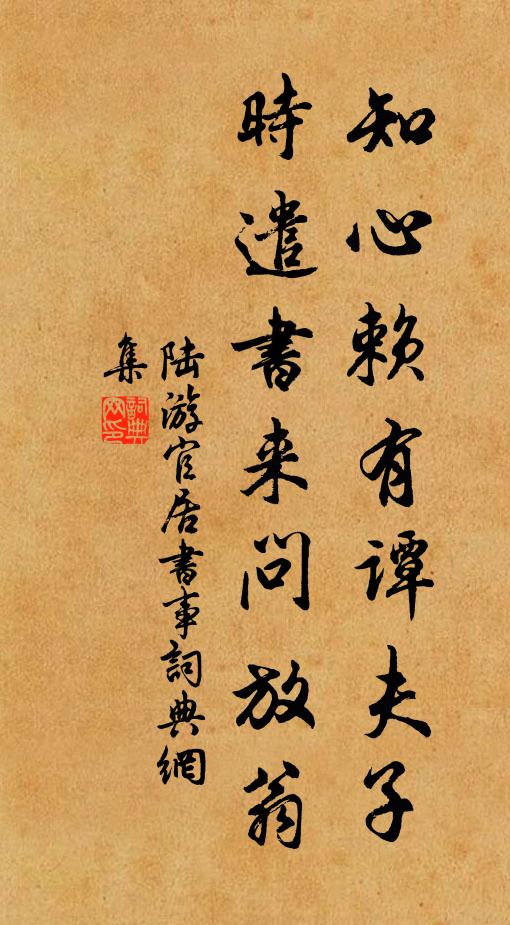 知心赖有谭夫子
時遣書来问放翁
陆游官居書事詞典網
集
詞典网印